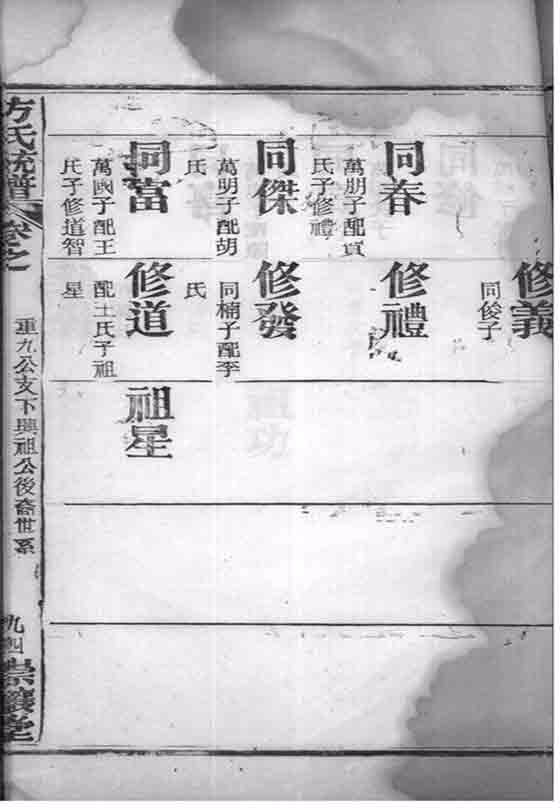 修義
同俊子
同春
萬朋子配賁
氏子修禮
修禮
同傑
萬明子配胡
氏
修發
同楠子配李
氏
同富
萬國子配王
氏子修道智
修道
配王氏子祖
星
祖星
方氏統譜
卷之
重九公支下興祖公後裔世系
九四
崇讓堂